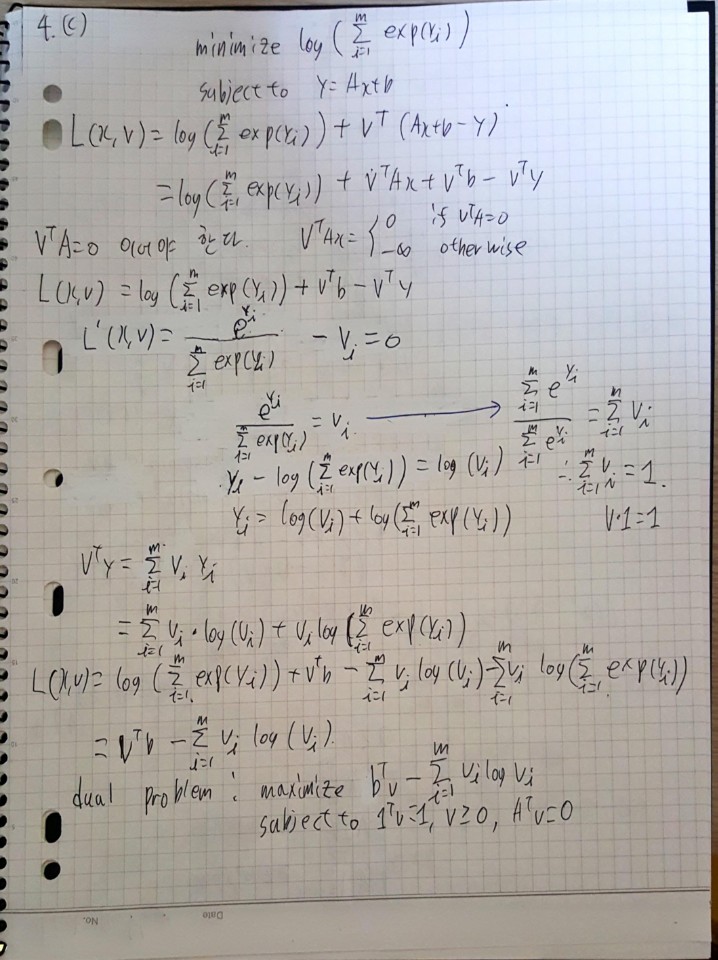 4. (c)
minimize log(∑_{i=1}^{m} exp(Y_i))
subject to Y=Ax+b
L(x,v) = log(∑_{i=1}^{m} exp(Y_i)) + V^T (Ax+b-Y)
= log(∑_{i=1}^{m} exp(Y_i)) + V^T Ax + V^T b - V^T Y
V^T A=0 이어야 한다. V^T Ax = { 0 if V^T A=0
-∞ otherwise
L(x,v) = log(∑_{i=1}^{m} exp(Y_i)) + V^T b - V^T Y
L'(x,v) = e^{Y_i} / ∑_{i=1}^{m} exp(Y_i) - V_i = 0
e^{Y_i} / ∑_{i=1}^{m} exp(Y_i) = V_i → ∑_{i=1}^{m} e^{Y_i} / ∑_{i=1}^{m} e^{Y_i} = ∑_{i=1}^{m} V_i
Y_i - log(∑_{i=1}^{m} exp(Y_i)) = log(V_i) ∴ ∑_{i=1}^{m} V_i = 1.
Y_i = log(V_i) + log(∑_{i=1}^{m} exp(Y_i)) V·1=1
V^T Y = ∑_{i=1}^{m} V_i Y_i
= ∑_{i=1}^{m} V_i · log(V_i) + V_i log(∑_{i=1}^{m} exp(Y_i))
L(x,v) = log(∑_{i=1}^{m} exp(Y_i)) + V^T b - ∑_{i=1}^{m} V_i log(V_i) - ∑_{i=1}^{m} V_i log(∑_{i=1}^{m} exp(Y_i))
= V^T b - ∑_{i=1}^{m} V_i log(V_i).
dual problem : maximize b^T v - ∑_{i=1}^{m} V_i log V_i
subject to 1^T v=1, v≥0, A^T v=0
No. Date